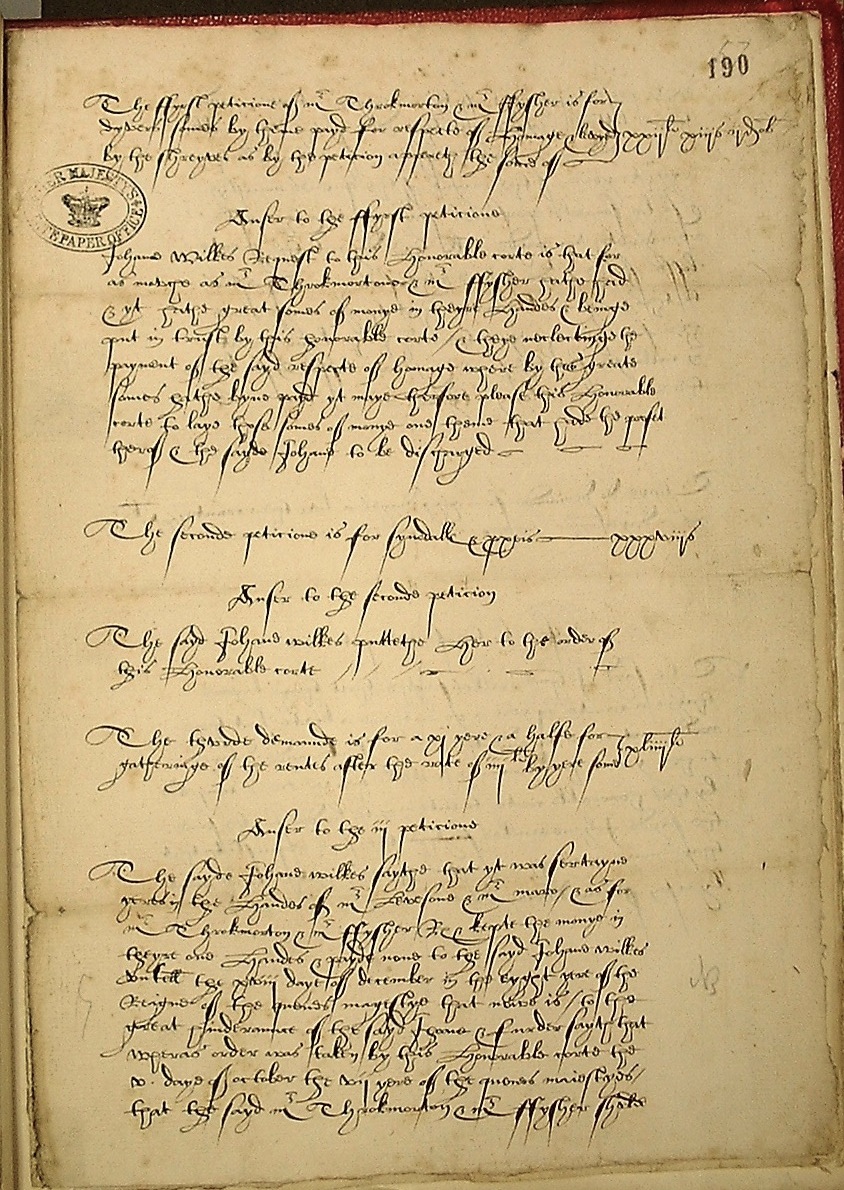 190
The ffyrst peticione of mr Throkmorton & mr ffysher is for
dyvers somes by heme payd for respecte of Homage xxijli xiijs
by the shreyves as by the peticion apereth the some of
HER MAJESTY'S STATE PAPER OFFICE
Anser to the ffyrst peticione
Johane Wilkes Request to this Honorable corte is that for
as moche as mr Throkmorton & mr ffysher hathe had
& yt hathe great somes of monye in theyre Handes & beinge
put in trust by this honorable corte / & theye neclectinge the
payment of the sayd respecte of homage where by thes greate
somes hathe byne payd yt maye therfore please this Honorable
corte to laye those somes of monye one theme that hade the profet
therof & the sayde Johane to be discharged
The seconde peticione is for xxxviijs
Anser to the seconde peticion
The sayd Johane wilkes puttethe Her to the order of
this Honorable corte
The thyrde demannde is for a xj yere & a halfe for
gatheringe of the rentes after the rate of iiijli by yere some xliiijli
Anser to the iij peticione
The sayde Johane wilkes saythe that yt was sertayne
yeres in the Handes of mr Levesone & mr / & as for
mr Throkmorton & mr ffysher kepte the monye in
theyre one Handes & payde none to the sayd Johane wilkes
untell the xviij daye of december in the eyght yere of the
Reigne of the quenes magestye that nowe is / to the
great hinderannce of the sayd Johane & furder sayth that
wheras order was taken by this Honorable corte the
v. daye of october the vij yere of the quenes maiestyes /
that the sayd mr Throkmorton & mr ffysher shulde